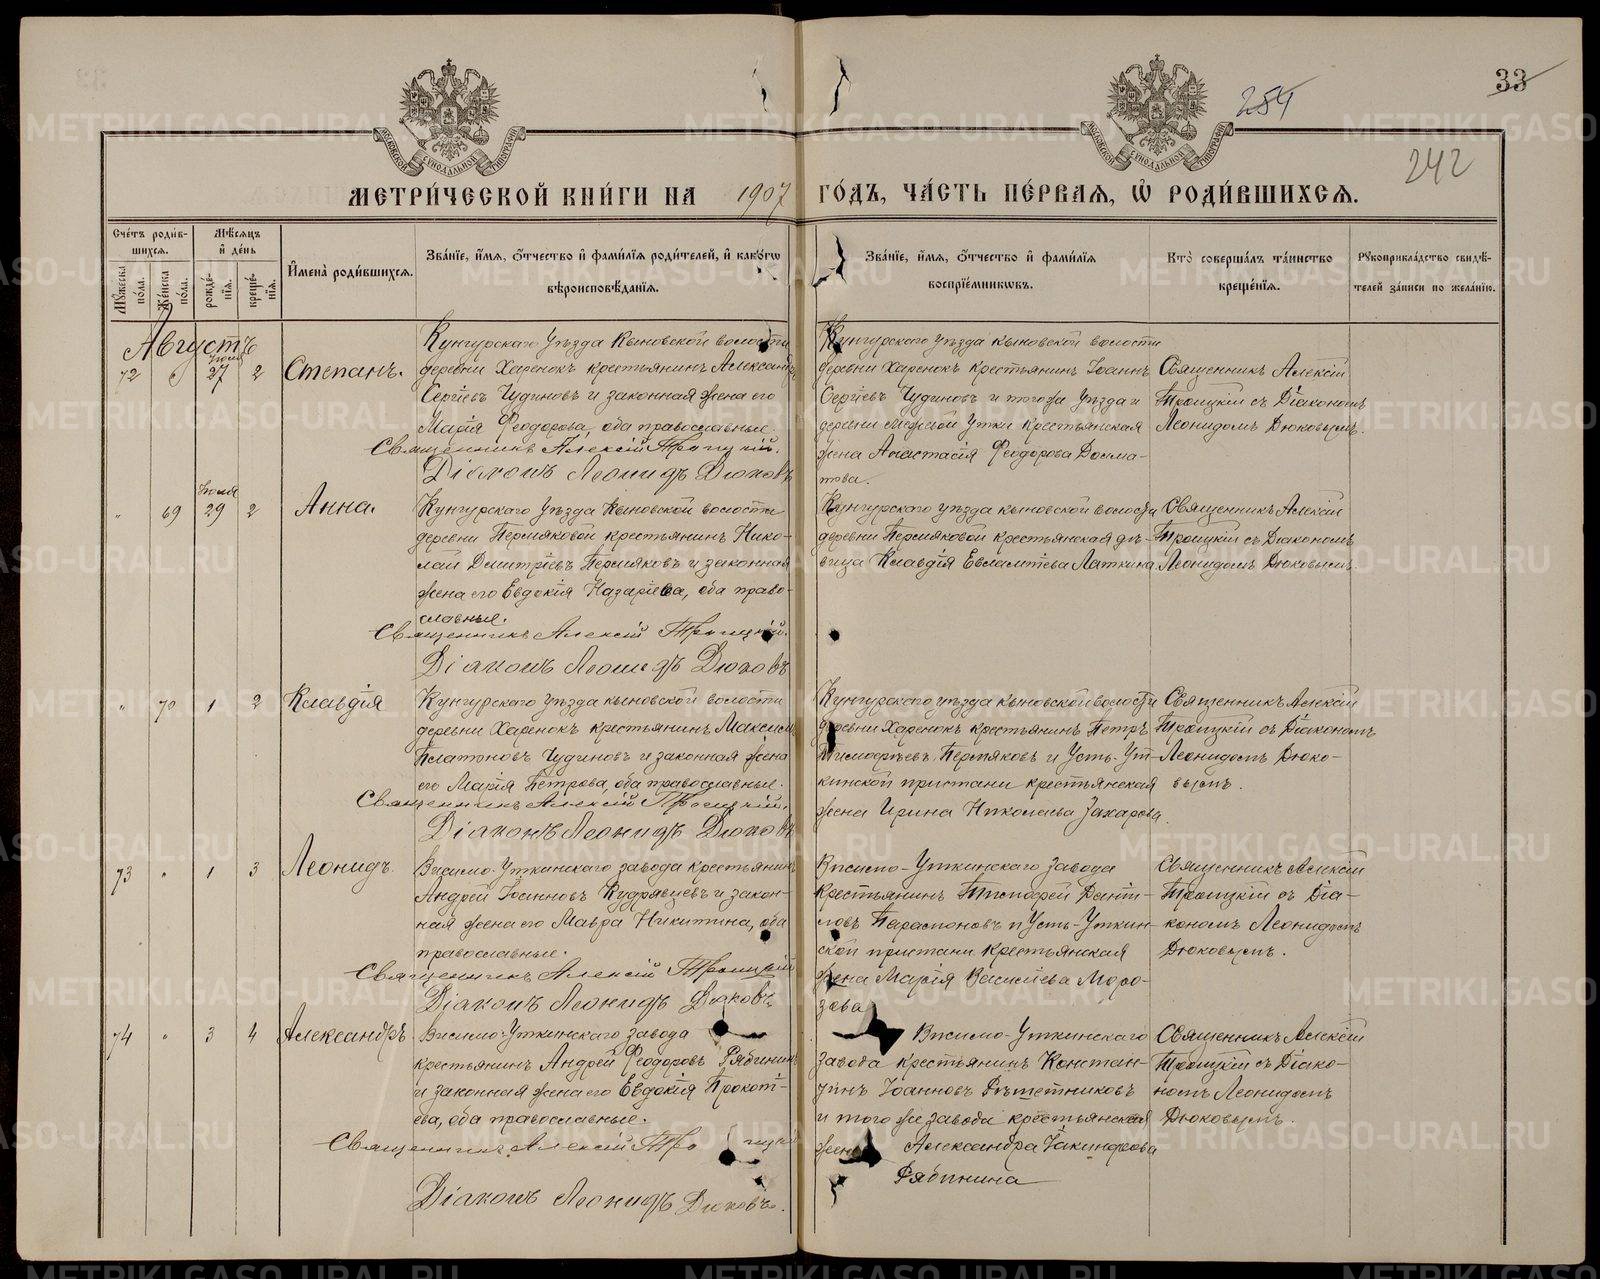 33
254
242
МЕТРИ́ЧЕСКОЙ КНИ́ГИ НА 1907 ГО́ДЪ, ЧА́СТЬ ПЕ́РВАЯ, Ѡ҆ РОДИ́ВШИХСЯ.
Сче́тъ роди́в-
шихся.
Мѣ́сяцъ
и҆ де́нь
Мꙋ́жеска
по́ла.
Же́нска
по́ла.
рожде́-
нїѧ.
креще́-
нїѧ.
И҆мена̀ роди́вшихся.
Зва́нїе, и҆́мя, ѻ҆́тчество и҆ фами́лїя роди́телей, и҆ како́гѡ
вѣроисповѣ́данїя.
Зва́нїе, и҆́мя, ѻ҆́тчество и҆ фами́лїя
воспрїе́мникѡвъ.
Кто̀ соверша́лъ та́инство
креще́нїя.
Рꙋкоприкла́дство свидѣ́-
телей за́писи по жела́нїю.
Августъ
72 " Іюля 27 2
Степанъ.
Кунгурскаго Уѣзда Кыновской волости
деревни Харенокъ крестьянинъ Александръ
Сергіевъ Чудиновъ и законная жена его
Марія Ѳеодорова, оба православные.
Священникъ Алексій Троицкій.
Діаконъ Леонидъ Дюковъ
Кунгурскаго уѣзда Кыновской волости
деревни Харенокъ крестьянинъ Іоаннъ
Сергіевъ Чудиновъ и тогоже уѣзда и
деревни Межевой Утки крестьянская
жена Анастасія Ѳеодорова Долма-
това.
Священникъ Алексій
Троицкій съ Діакономъ
Леонидомъ Дюковымъ.
" 69 Іюля 29 2
Анна.
Кунгурскаго Уѣзда Кыновской волости
деревни Пермяковой крестьянинъ Нико-
лай Дмитріевъ Пермяковъ и законная
жена его Евдокія Назаріева, оба право-
славные.
Священникъ Алексій Троицкій.
Діаконъ Леонидъ Дюковъ
Кунгурскаго уѣзда Кыновской волости
деревни Пермяковой крестьянская дѣ-
вица Клавдія Евлампіева Латкина
Священникъ Алексій
Троицкій съ Діакономъ
Леонидомъ Дюковымъ
" 70 1 2
Клавдія
Кунгурскаго уѣзда Кыновской волости
деревни Харенокъ крестьянинъ Максимъ
Платоновъ Чудиновъ и законная жена
его Марія Петрова, оба православные.
Священникъ Алексій Троицкій.
Діаконъ Леонидъ Дюковъ
Кунгурскаго уѣзда Кыновской волости
деревни Харенокъ крестьянинъ Петръ
Тимофѣевъ Пермяковъ и Усть-Ут-
кинской пристани крестьянская
жена Ирина Николаева Захарова.
Священникъ Алексій
Троицкій съ Діакономъ
Леонидомъ Дюко-
вымъ.
73 " 1 3
Леонидъ.
Висимо-Уткинскаго завода крестьянинъ
Андрей Іоанновъ Кудрявцевъ и закон-
ная жена его Мавра Никитина, оба
православные.
Священникъ Алексій Троицкій
Діаконъ Леонидъ Дюковъ
Висимо-Уткинскаго завода
крестьянинъ Тимофей Даніи-
ловъ Парамоновъ и Усть-Уткин-
ской пристани крестьянская
жена Марія Василіева Моро-
зова
Священникъ Алексій
Троицкій съ Діа-
кономъ Леонидомъ
Дюковымъ.
74 " 3 4
Александръ
Висимо-Уткинскаго завода
крестьянинъ Андрей Ѳеодоровъ Рябининъ
и законная жена его Евдокія Прокопі-
ева, оба православные.
Священникъ Алексій Троицкій
Діаконъ Леонидъ Дюковъ.
Висимо-Уткинскаго
завода крестьянинъ Констан-
тинъ Іоанновъ Рѣшетниковъ
и того же завода крестьянская
жена Александра Іакинфова
Рябинина
Священникъ Алексій
Троицкій съ Діако-
номъ Леонидомъ
Дюковымъ.
METRIKI.GASO-URAL.RU